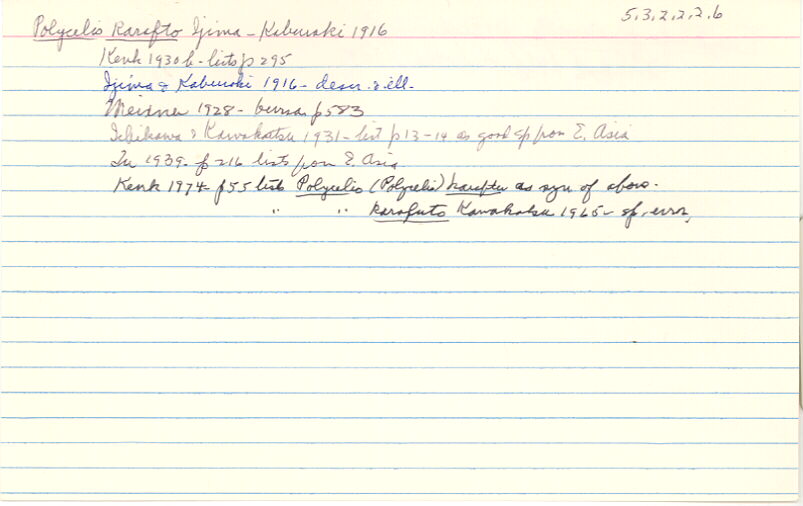 5.3.2.2.2.6
Polycelis Karafto Ijima - Kaburaki 1916
Kenk 1930b - lists p 295
Ijima & Kaburaki 1916 - descr. & ill.
Meixner 1928 - bursa p 583
Ichikawa & Kawakatsu 1931 - list p 13-14 as good sp from E. Asia
1939 - p 216 lists from E. Asia
Kenk 1974 p 55 lists Polycelis (Polycelis) karafto as syn of above.
" " karafuto Kawakatsu 1965 - sp. error,